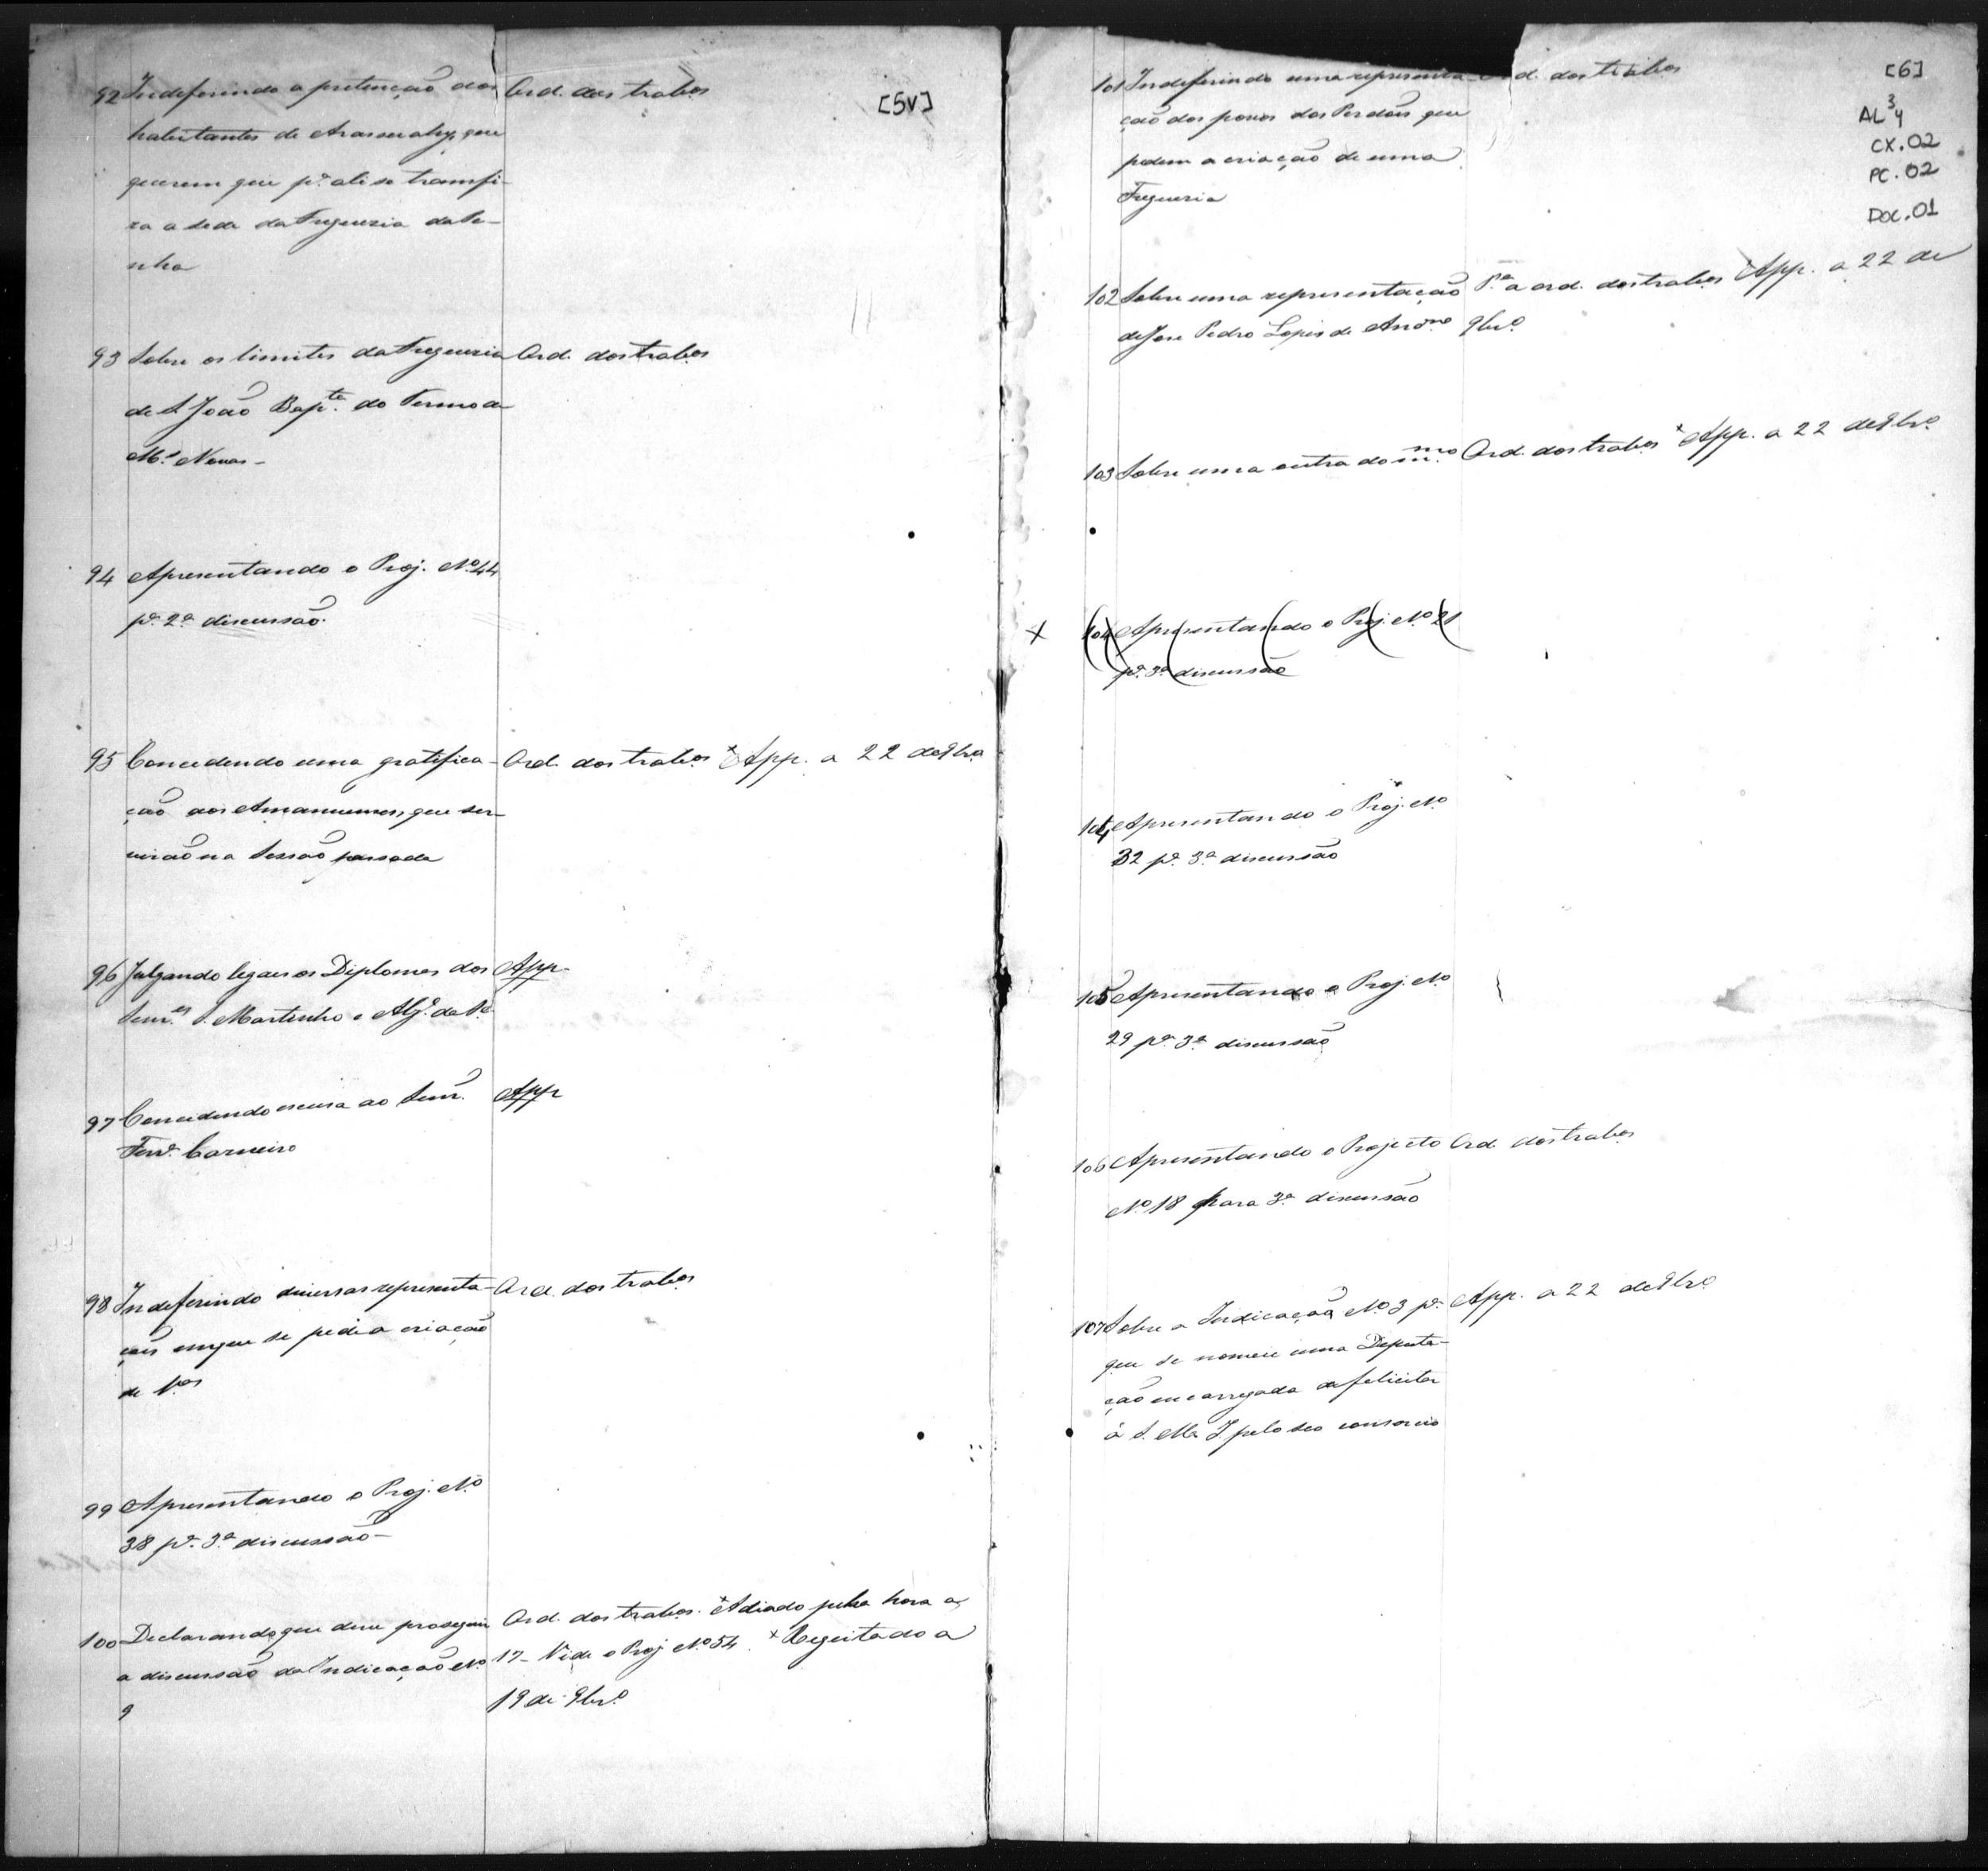 [5v]
92 Indeferindo a pretenção dos Ord. dos trabos
habitantes de Arassuahy, que
querem que pa. ali se transfi-
ra a sede da Freguezia da Pe-
nha
93 Sobre os limites da Freguezia Ord. dos trabos
de S. João Bapta. do Termo de
Ms. Novas -
94 Apresentando o Proj. No. 44
pa. 2a. discussão.
95 Concedendo uma gratifica- Ord. dos trabos. × App. a 22 de 9bro.
ção aos Amanuenses, que ser-
virão na Sessão passada
96 Julgando legaes os Diplomas dos App.
Senres. S. Martinho e
97 Concedendo escusa ao Senr. App
Ferra. Carneiro
98 Indeferindo diversas representa- Ord. dos trabos
ções em que se pedia criação
de Vas
99 Apresentando o Proj. No.
38 pa. 3a. discussão -
100 Declarando que deve proseguir Ord. dos trabos. × Adiado pela hora a
a discussão da Indicação No. 17 - Vide o Proj No. 54. × Regeitado a
9 19 de 9bro.
[6]
AL 3/4
CX. 02
PC. 02
DOC. 01
101 Indeferindo uma representa- Ord. dos trabos
ção dos povos dos Perdões que
pedem a criação de uma
Freguezia
102 Sobre uma representação Pa. a ord. dos trabos × App. a 22 de
de Jose Pedro Lopes de 9bro.
103 Sobre uma outra do mmo. Ord. dos trabos × App. a 22 de 9bro.
× 104 Apresentando o Proj. No. 21
pa. 3a. discussão
104 Apresentando o Proj. No.
32 pa. 3a. discussão
105 Apresentando o Proj. No.
29 pa. 3a. discussão
106 Apresentando o Projecto Ord. dos trabos
No. 18 para 3a. discussão
107 Sobre a Indicação No. 3 pa. App. a 22 de 9bro.
que se nomeie uma Deputa-
ção encarregada de felicitar
à S. M. I. pelo seo consorcio